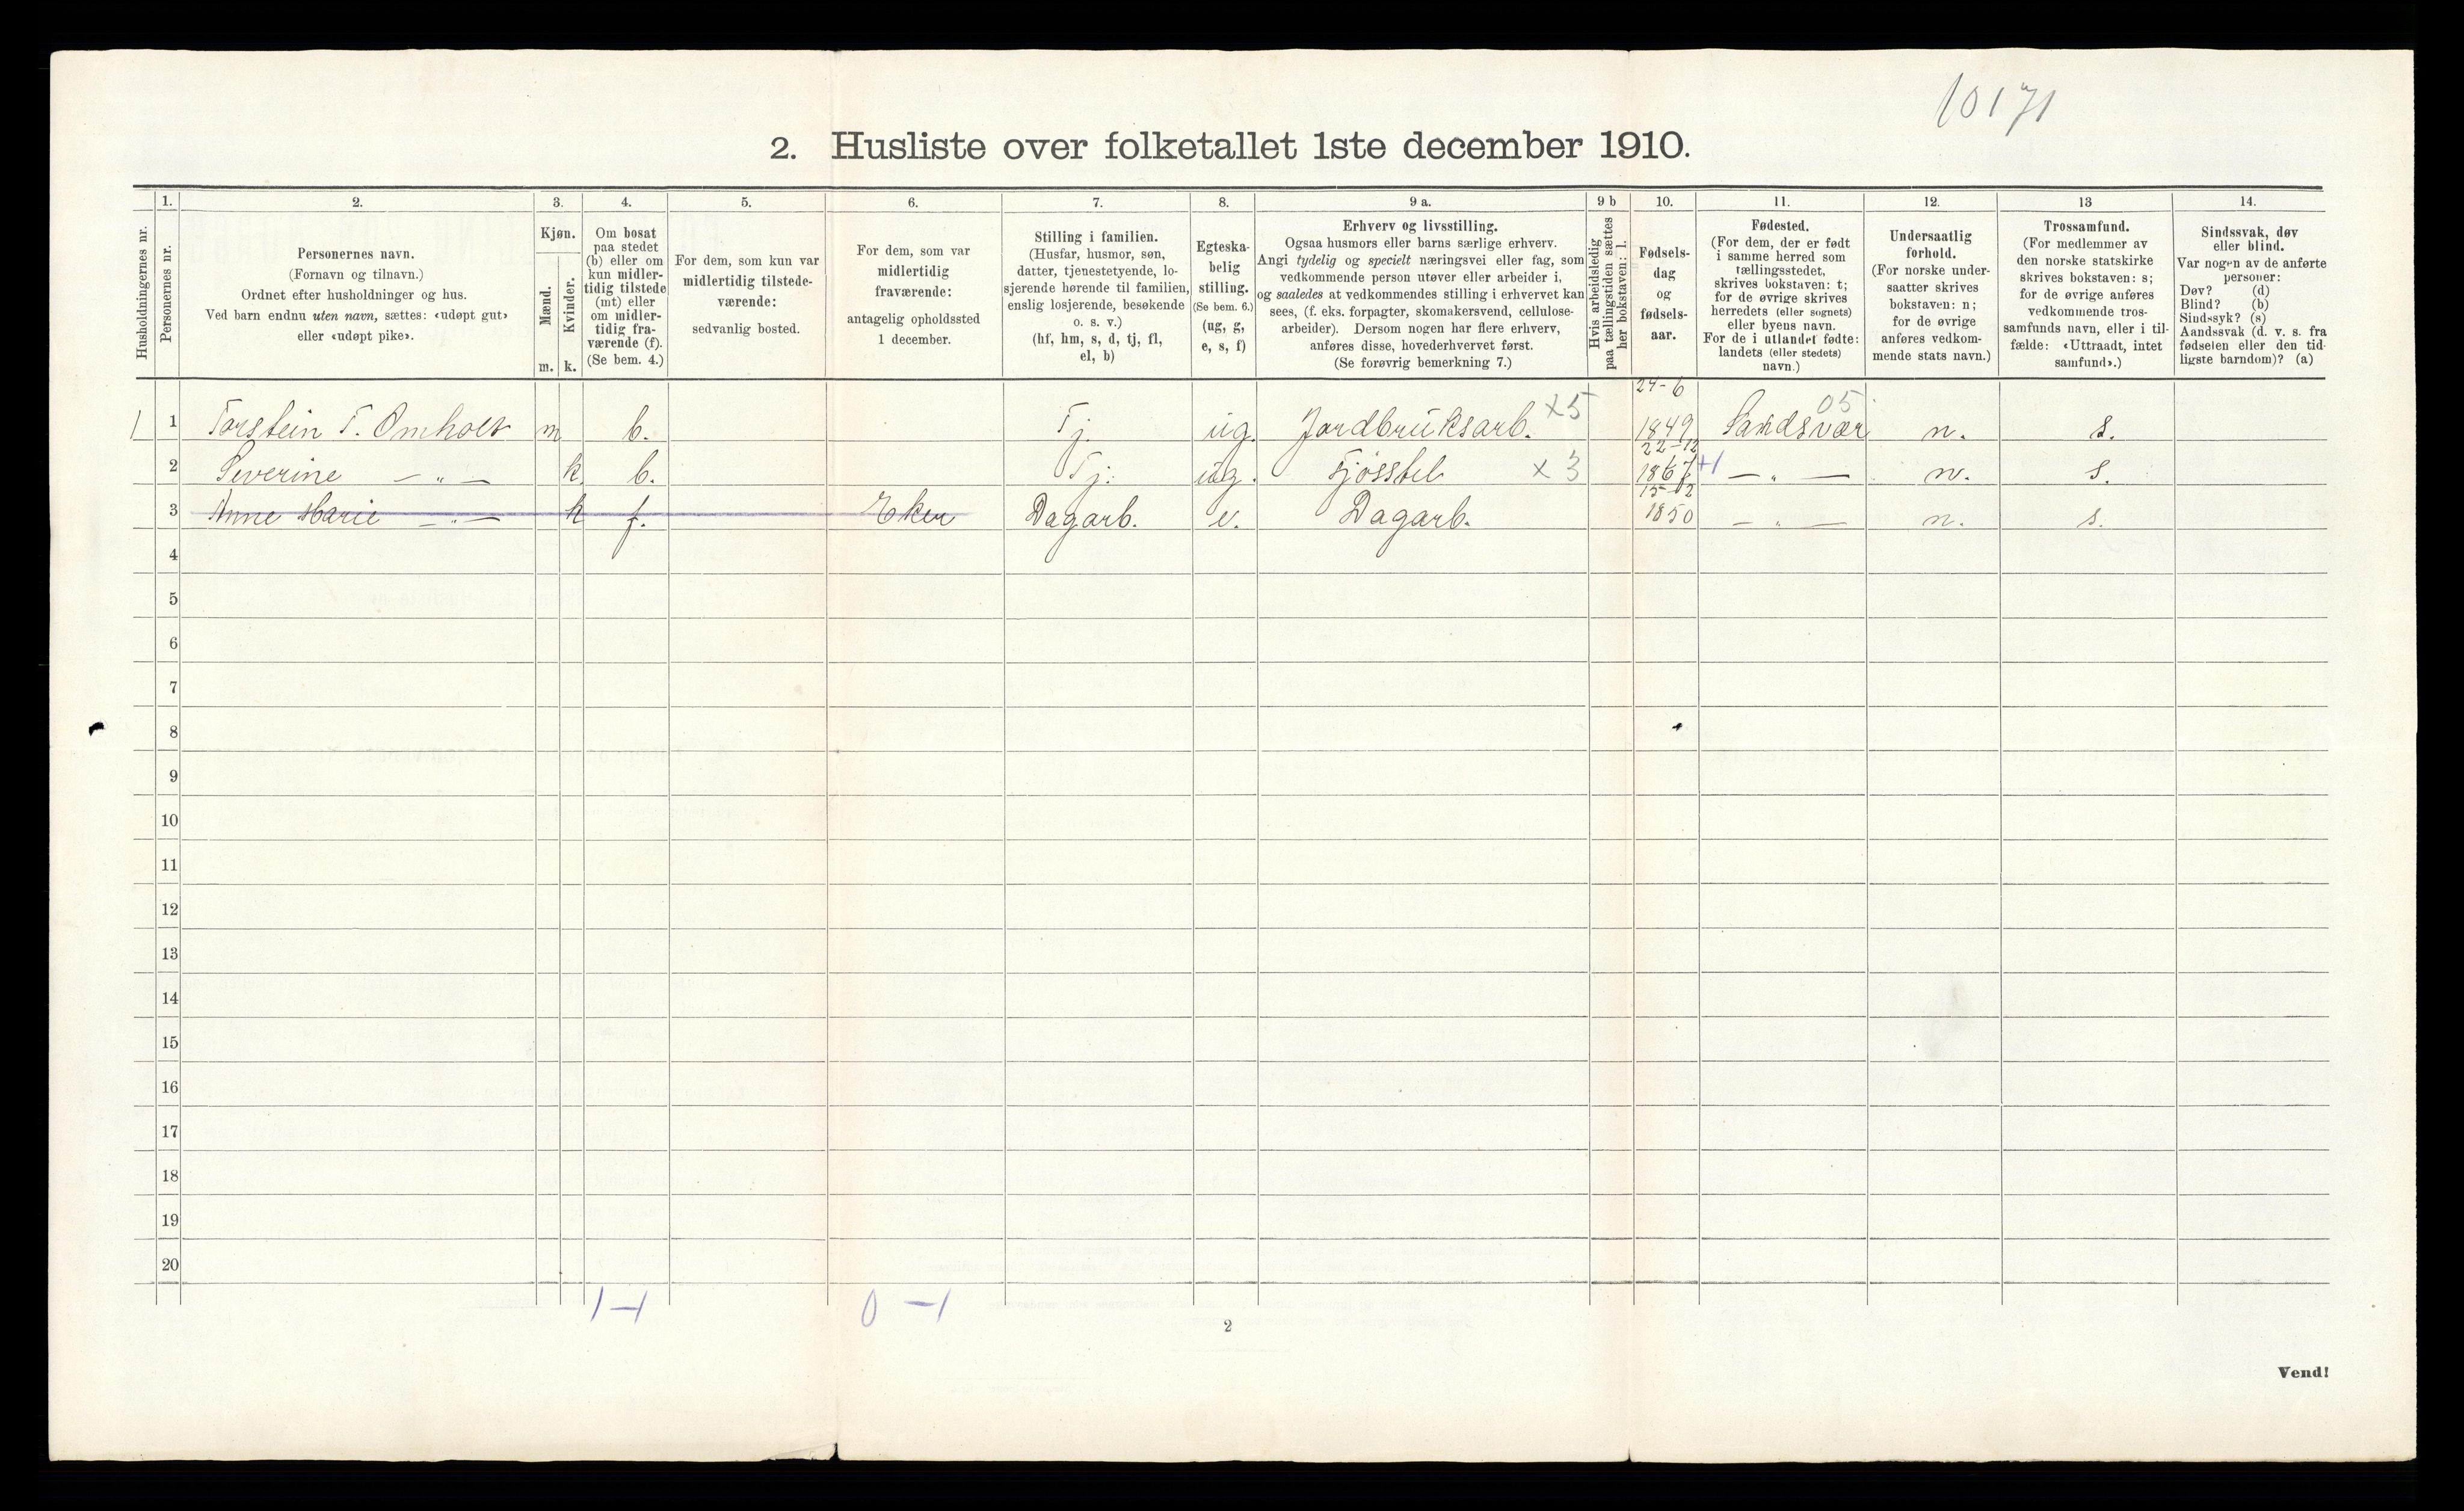 10171
2. Husliste over folketallet 1ste december 1910.
Husholdningernes nr.
1.
Personernes nr.
2.
Personernes navn.
(Fornavn og tilnavn.)
Ordnet efter husholdninger og hus.
Ved barn endnu uten navn, sættes: «udøpt gut»
eller «udøpt pike».
3.
Kjøn.
Mænd.
Kvinder.
m. k.
4.
Om bosat
paa stedet
(b) eller om
kun midler-
tidig tilstede
(mt) eller
om midler-
tidig fra-
værende (f).
(Se bem. 4.)
5.
For dem, som kun var
midlertidig tilstede-
værende:
sedvanlig bosted.
6.
For dem, som var
midlertidig
fraværende:
antagelig opholdssted
1 december.
7.
Stilling i familien.
(Husfar, husmor, søn,
datter, tjenestetyende, lo-
sjerende hørende til familien,
enslig losjerende, besøkende
o. s. v.)
(hf, hm, s, d, tj, fl,
el, b)
8.
Egteska-
belig
stilling.
(Se bem. 6.)
(ug, g,
e, s, f)
9 a.
Erhverv og livsstilling.
Ogsaa husmors eller barns særlige erhverv.
Angi tydelig og specielt næringsvei eller fag, som
vedkommende person utøver eller arbeider i,
og saaledes at vedkommendes stilling i erhvervet kan
sees, (f. eks. forpagter, skomakersvend, cellulose-
arbeider). Dersom nogen har flere erhverv,
anføres disse, hovederhvervet først.
(Se forøvrig bemerkning 7.)
9 b
Hvis arbeidsledig
paa tællingstiden sættes
her bokstaven: l.
10.
Fødsels-
dag
og
fødsels-
aar.
11.
Fødested.
(For dem, der er født
i samme herred som
tællingsstedet,
skrives bokstaven: t;
for de øvrige skrives
herredets (eller sognets)
eller byens navn.
For de i utlandet fødte:
landets (eller stedets)
navn.)
12.
Undersaatlig
forhold.
(For norske under-
saatter skrives
bokstaven: n;
for de øvrige
anføres vedkom-
mende stats navn.)
13
Trossamfund.
(For medlemmer av
den norske statskirke
skrives bokstaven: s;
for de øvrige anføres
vedkommende tros-
samfunds navn, eller i til-
fælde: «Uttraadt, intet
samfund».)
14.
Sindssvak, døv
eller blind.
Var nogen av de anførte
personer:
Døv? (d)
Blind? (b)
Sindssyk? (s)
Aandssvak (d. v. s. fra
fødselen eller den tid-
ligste barndom)? (a)
1 1 Torstein T. Omholt m b. Tj. ug. Jordbruksarb. x5 24-6 1849 Sandsvær 05 n. s.
2 Severine — " — k b. Tj. ug. Fjösstel x 3 22-12 1867 +1 — " — n. s.
3 Anne Marie — " — k f. Eker Dagarb. e. Dagarb. 15-12 1850 — " — n. s.
4
5
6
7
8
9
10
11
12
13
14
15
16
17
18
19
20
1-1 0-1
2
Vend!